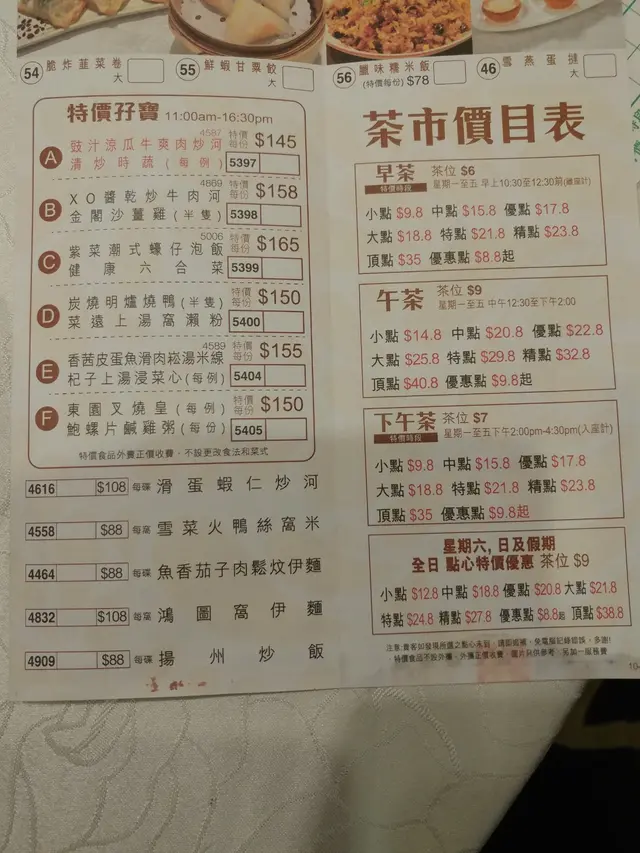 54 脆炸韮菜卷 大
55 鮮蝦甘粟餃 大
56 臘味糯米飯 (特價每份) $78
46 雪燕蛋撻 大
特價孖寶 11:00am-16:30pm
A 豉汁涼瓜牛爽肉炒河 4587 特價每份 $145
清炒時蔬(每例) 5397
B XO醬乾炒牛肉河 4869 特價每份 $158
金閣沙薑雞(半隻) 5398
C 紫菜潮式蠔仔泡飯 5006 特價每份 $165
健康六合菜 5399
D 炭燒明爐燒鴨(半隻) 特價每份 $150
菜遠上湯窩瀨粉 5400
E 香茜皮蛋魚滑肉崧湯米線 4589 特價每份 $155
杞子上湯浸菜心(每例) 5404
F 東園叉燒皇(每例) 特價每份 $150
鮑螺片鹹雞粥(每份) 5405
特價食品外賣正價收費,不設更改食法和菜式
4616 $108 每碟 滑蛋蝦仁炒河
4558 $88 每窩 雪菜火鴨絲窩米
4464 $88 每碟 魚香茄子肉鬆炆伊麵
4832 $108 每窩 鴻圖窩伊麵
4909 $88 每碟 揚州炒飯
茶市價目表
早茶 特價時段 茶位 $6
星期一至五 早上10:30至12:30前(離座計)
小點 $9.8 中點 $15.8 優點 $17.8
大點 $18.8 特點 $21.8 精點 $23.8
頂點 $35 優惠點 $8.8起
午茶 茶位 $9
星期一至五 中午12:30至下午2:00
小點 $14.8 中點 $20.8 優點 $22.8
大點 $25.8 特點 $29.8 精點 $32.8
頂點 $40.8 優惠點 $9.8起
下午茶 特價時段 茶位 $7
星期一至五下午2:00pm-4:30pm(入座計)
小點 $9.8 中點 $15.8 優點 $17.8
大點 $18.8 特點 $21.8 精點 $23.8
頂點 $35 優惠點 $9.8起
星期六, 日及假期
全日 點心特價優惠 茶位 $9
小點 $12.8 中點 $18.8 優點 $20.8 大點 $21.8
特點 $24.8 精點 $27.8 優惠點 $8.8起 頂點 $38.8
特價食品不設外賣,外賣正價收費,圖片只供參考,另加一服務費
10-